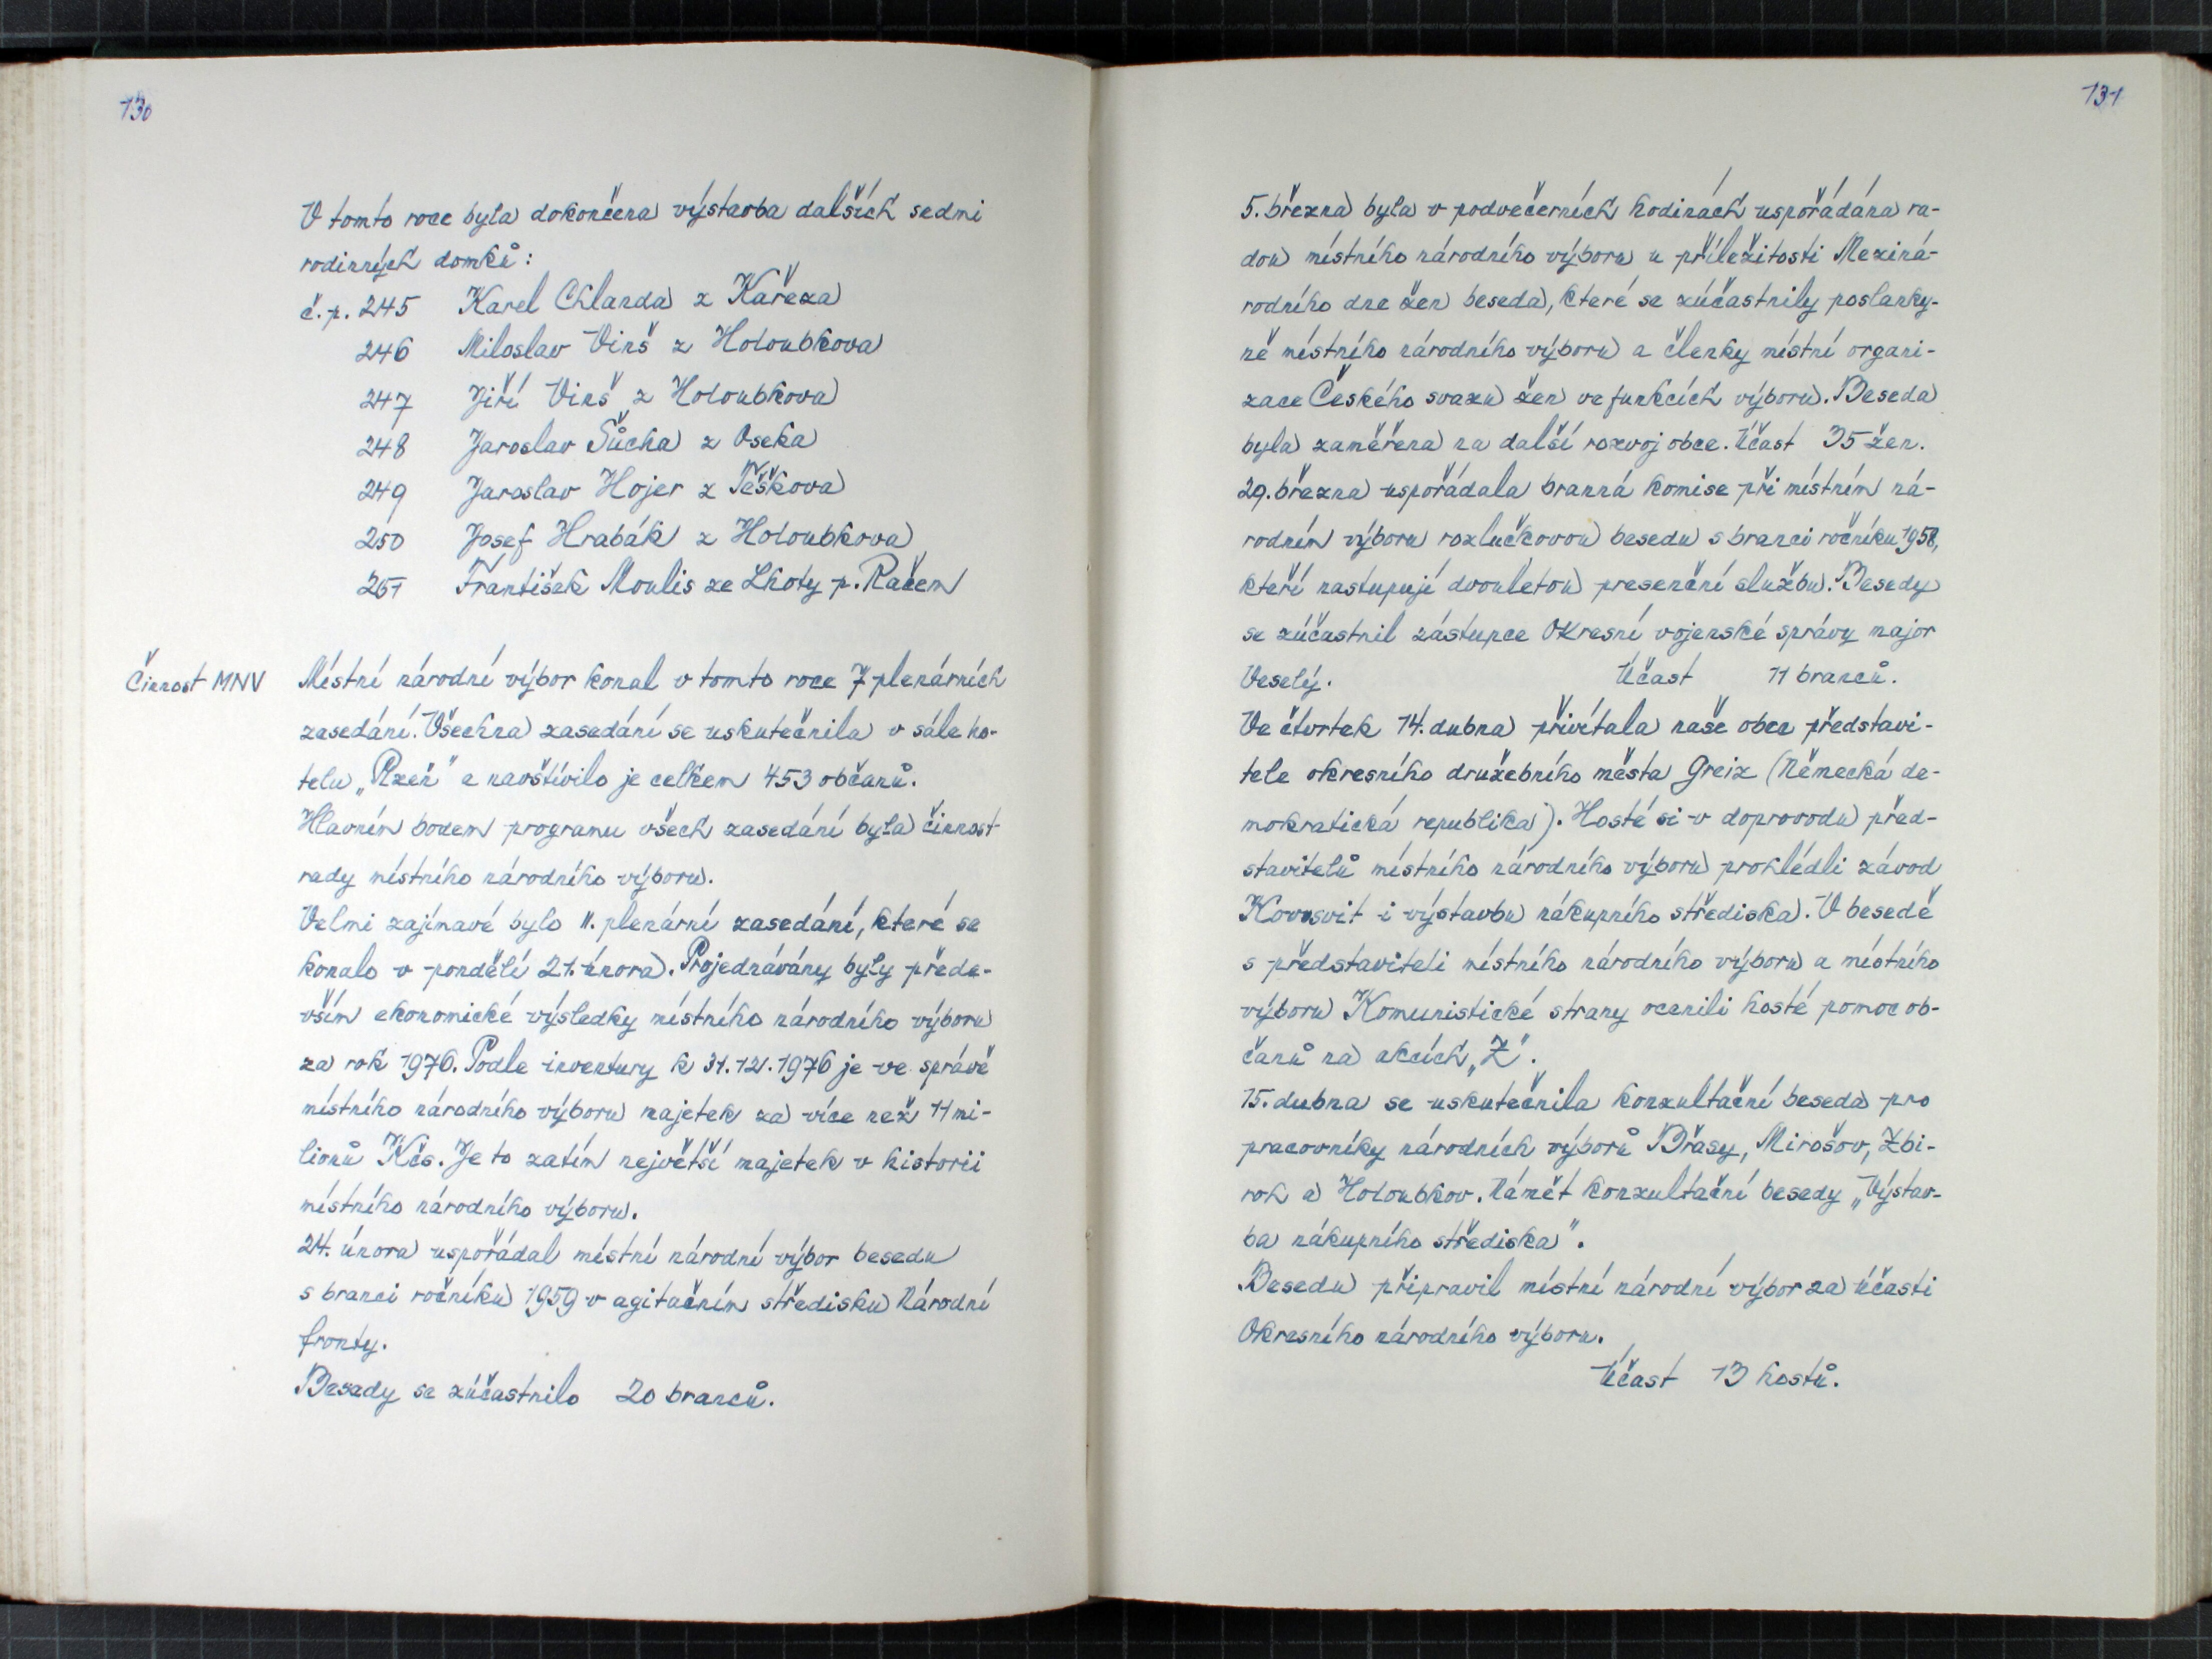 130
V tomto roce byla dokončena výstavba dalších sedmi
rodinných domků:
č.p. 245 Karel Chlanda z Kařeza
246 Miloslav Vinš z Holoubkova
247 Jiří Vinš z Holoubkova
248 Jaroslav Šůcha z Oseka
249 Jaroslav Hojer z Těškova
250 Josef Hrabák z Holoubkova
251 František Moulis ze Lhoty p. Račem
Činnost MNV
Místní národní výbor konal v tomto roce 7 plenárních
zasedání. Všechna zasedání se uskutečnila v sále ho-
telu „Plzeň" a navštívilo je celkem 453 občanů.
Hlavním bodem programu všech zasedání byla činnost
rady místního národního výboru.
Velmi zajímavé bylo II. plenární zasedání, které se
konalo v pondělí 21. února. Projednávány byly přede-
vším ekonomické výsledky místního národního výboru
za rok 1976. Podle inventury k 31.12.1976 je ve správě
místního národního výboru majetek za více než 11 mi-
lionů Kčs. Je to zatím největší majetek v historii
místního národního výboru.
24. února uspořádal místní národní výbor besedu
s branci ročníku 1959 v agitačním středisku Národní
fronty.
Besedy se zúčastnilo 20 branců.
131
5. března byla v podvečerních hodinách uspořádána ra-
dou místního národního výboru u příležitosti Meziná-
rodního dne žen beseda, které se zúčastnily poslanky-
ně místního národního výboru a členky místní organi-
zace Českého svazu žen ve funkcích výboru. Beseda
byla zaměřena na další rozvoj obce. Účast 35 žen.
29. března uspořádala branná komise při místním ná-
rodním výboru rozlučkovou besedu s branci ročníku 1958,
kteří nastupují dvouletou presenční službu. Besedy
se zúčastnil zástupce Okresní vojenské správy major
Veselý. Účast 11 branců.
Ve čtvrtek 14. dubna přivítala naše obec představi-
tele okresního družebního města Greiz (Německá de-
mokratická republika). Hosté si v doprovodu před-
stavitelů místního národního výboru prohlédli závod
Kovosvit i výstavbu nákupního střediska. V besedě
s představiteli místního národního výboru a místního
výboru Komunistické strany ocenili hosté pomoc ob-
čanů na akcích „Z".
15. dubna se uskutečnila konzultační beseda pro
pracovníky národních výborů Břasy, Mirošov, Zbi-
roh a Holoubkov. Námět konzultační besedy „Výstav-
ba nákupního střediska".
Besedu připravil místní národní výbor za účasti
Okresního národního výboru.
Účast 13 hostů.